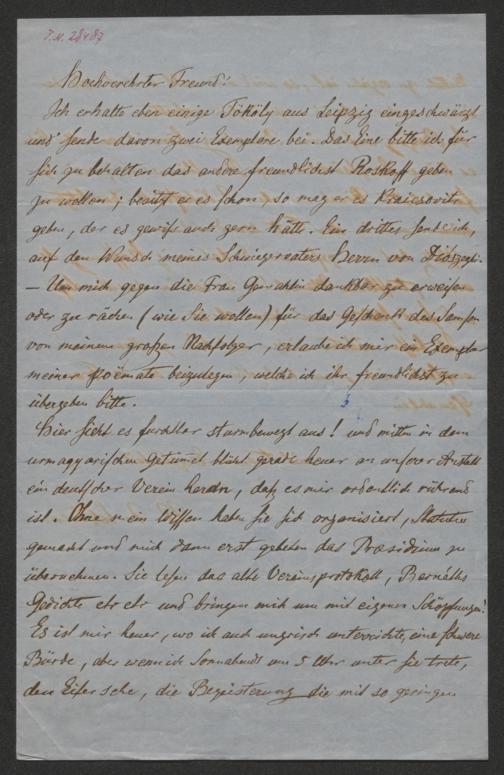 I.N. 28487
Hochverehrter Freund!
Ich erhalte eben einige Tököly aus Leipzig eingeschwärzt
und sende davon zwei Exemplare bei. Das Eine bitte ich für
sich zu behalten das andre freundlichst Roskoff geben
zu wollen; besitzt er es schon, so mag er es
geben, der es gewiß auch gern hätte. Ein drittes sende ich,
auf den Wunsch meines Schwiegervaters Herrn von Dioszegi.
— Um mich gegen die Frau Gemahlin dankbar zu erweisen
oder zu rächen (wie Sie wollen) für das Geschenk des Samson
von meinem großen Nachfolger, erlaube ich mir ein Exemplar
meiner Poëmata beizulegen, welche ich ihr freundlichst zu
übergeben bitte.
Hier sieht es furchtbar sturmbewegt aus! und mitten in dem
urmagyarischen Getümel blüht gerade heuer an unserer Anstalt
ein deutscher Verein heran, daß es mir ordentlich rührend
ist. Ohne mein Wissen haben sie sich organisiert, Statuten
gemacht und mich dann erst gebeten das Præsidium zu
übernehmen. Sie lesen das alte Vereinsprotokoll, Bernáths
Gedichte etc etc und bringen mich um mit eigenen Schöpfungen!
Es ist mir heuer, wo ich auch ungrisch unterrichte, eine schwere
Bürde, aber wenn ich Sonnabends um 5 Uhr unter sie trete,
den Eifer sehe, die Begeisterung die mit so geringen